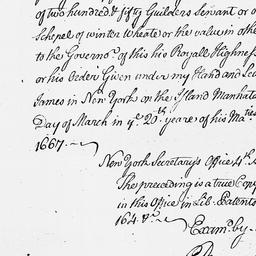 of two hundred & fifty Guilders Servant or o
Schepel of winter Wheate or the value in othe
to the Governo.r of this his Royall Highness
or his Order Given under my Hand and Sea
James in New York on the Island Manhata
Day of March in y.e 20.th yeare of his Ma.ties
1667.
New York Secretary's Office 4.th
The preceding is a true Copy
in this Office in Lib. Patents
164. &.c
Exam.d by